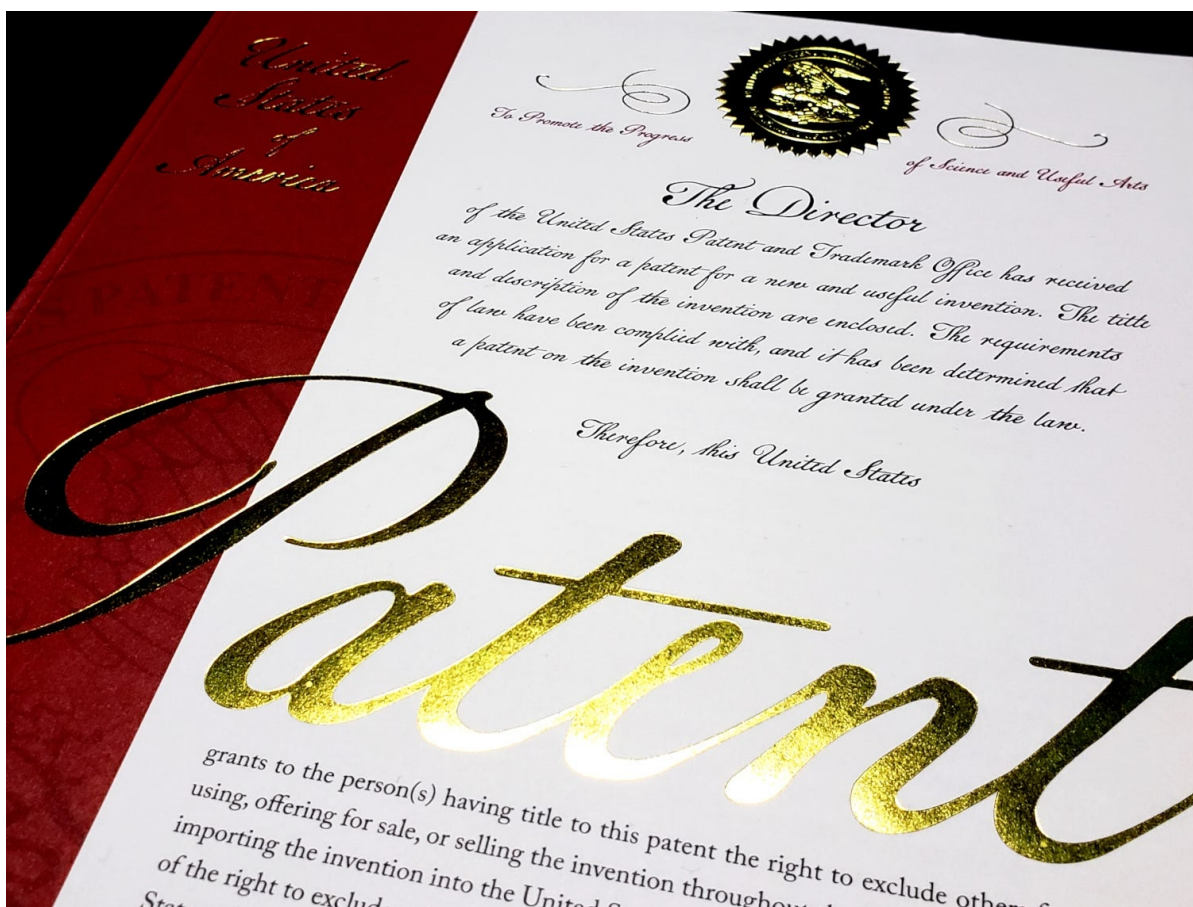 United
States
of
America
To Promote the Progress
of Science and Useful Arts
The Director
of the United States Patent and Trademark Office has received
an application for a patent for a new and useful invention. The title
and description of the invention are enclosed. The requirements
of law have been complied with, and it has been determined that
a patent on the invention shall be granted under the law.
Therefore, this United States
Patent
grants to the person(s) having title to this patent the right to exclude others
using, offering for sale, or selling the invention throughout
importing the invention into the United
of the right to exclude